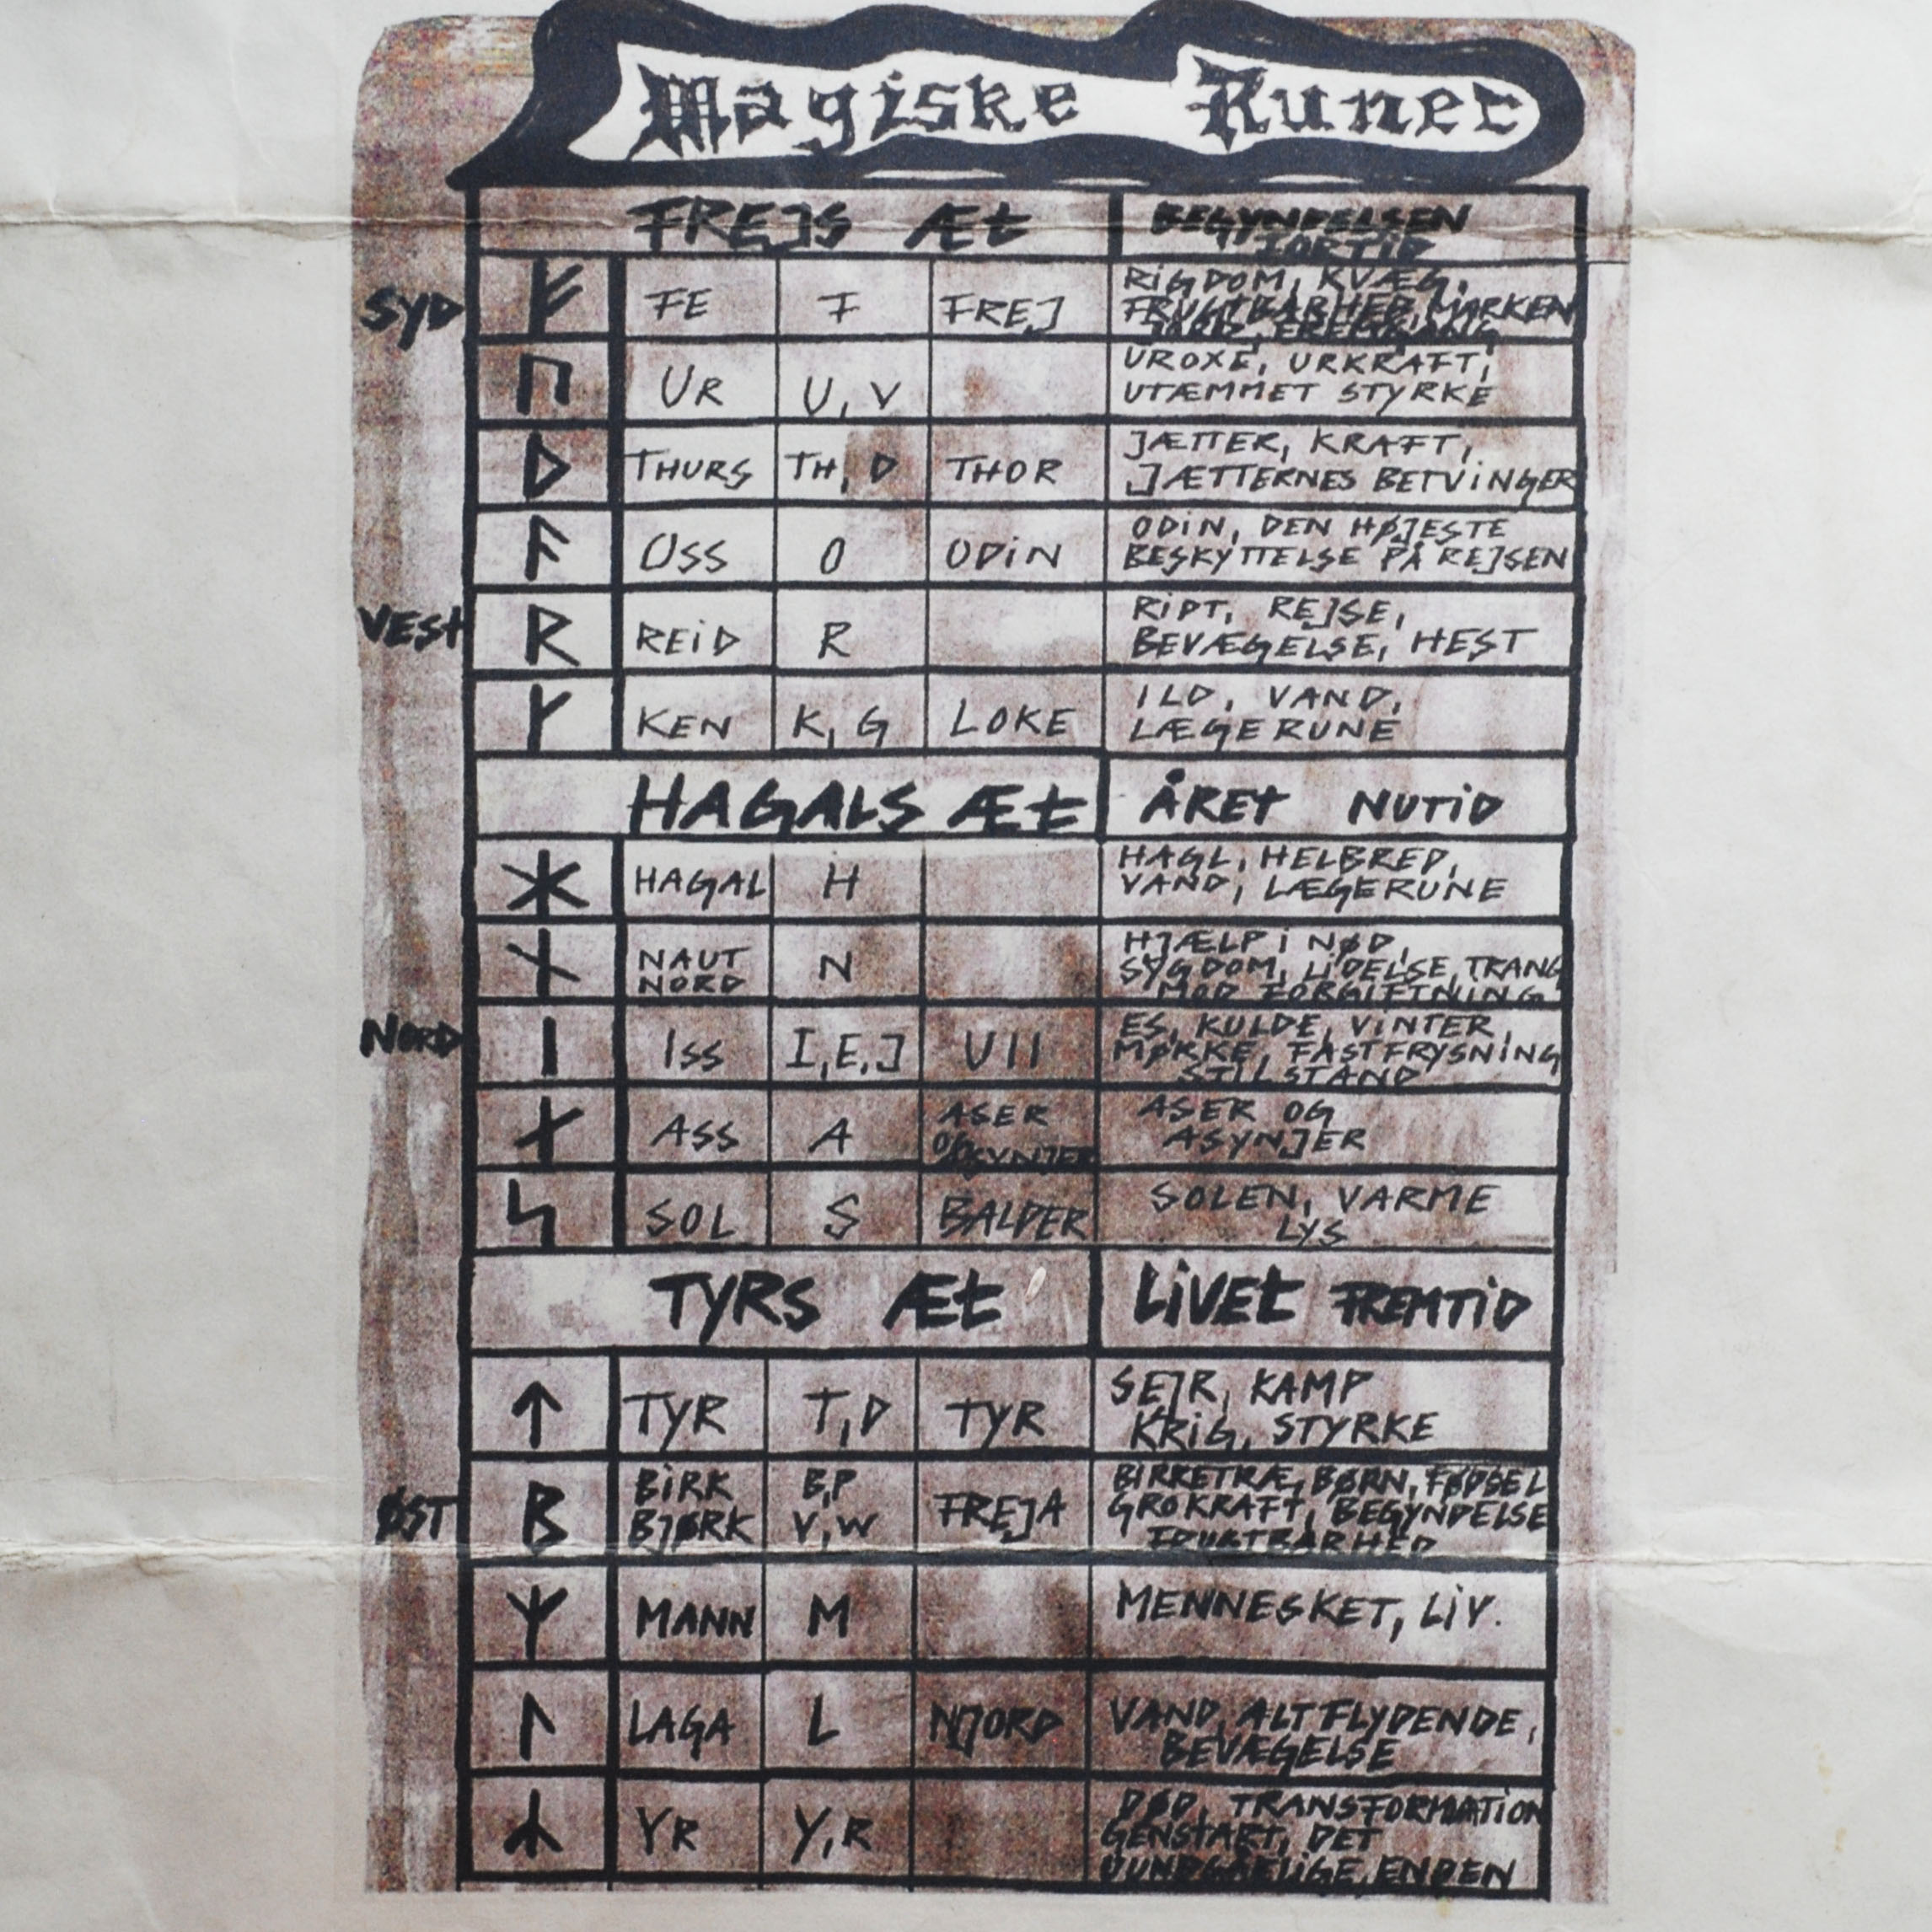 Magiske Runer
FREJS ÆT
BEGYNDELSEN
FORTID
SYD
ᚠ FE F FREJ
RIGDOM, KVÆG,
FRUGTBARHED, MARKEN
JORD, FREMGANG
ᚢ UR U, V
UROXE, URKRAFT,
UTÆMMET STYRKE
ᚦ THURS TH, D THOR
JÆTTER, KRAFT,
JÆTTERNES BETVINGER
ᚨ OSS O ODIN
ODIN, DEN HØJESTE
BESKYTTELSE PÅ REJSEN
VEST
ᚱ REID R
RIDT, REJSE,
BEVÆGELSE, HEST
ᚴ KEN K, G LOKE
ILD, VAND,
LÆGERUNE
HAGALS ÆT ÅRET NUTID
ᚼ HAGAL H
HAGL, HELBRED,
VAND, LÆGERUNE
ᚾ NAUT
NORD
N
HJÆLP I NØD,
SYGDOM, LIDELSE, TRANG
MOD FORGIFTNING
NORD
ᛁ ISS I, E, J Ull
ES, KULDE, VINTER,
MØRKE, FASTFRYSNING
STILSTAND
ᛅ ASS A
ASER
OG
ASYNJER
ASER OG
ASYNJER
ᛋ SOL S BALDER
SOLEN, VARME
LYS
TYRS ÆT LIVET FREMTID
ᛏ TYR T, D TYR
SEJR, KAMP
KRIG, STYRKE
ØST
ᛒ BIRK
BJØRK
B,P
V,W
FREJA
BIRKETRÆ, BØRN, FØDSEL
GROKRAFT, BEGYNDELSE
FRUGTBARHED
ᛘ MANN M
MENNESKET, LIV.
ᛚ LAGA L NJORD
VAND, ALT FLYDENDE,
BEVÆGELSE
ᛦ YR Y, R
DØD, TRANSFORMATION
GENSTART, DET
UUNDGÅELIGE, ENDEN